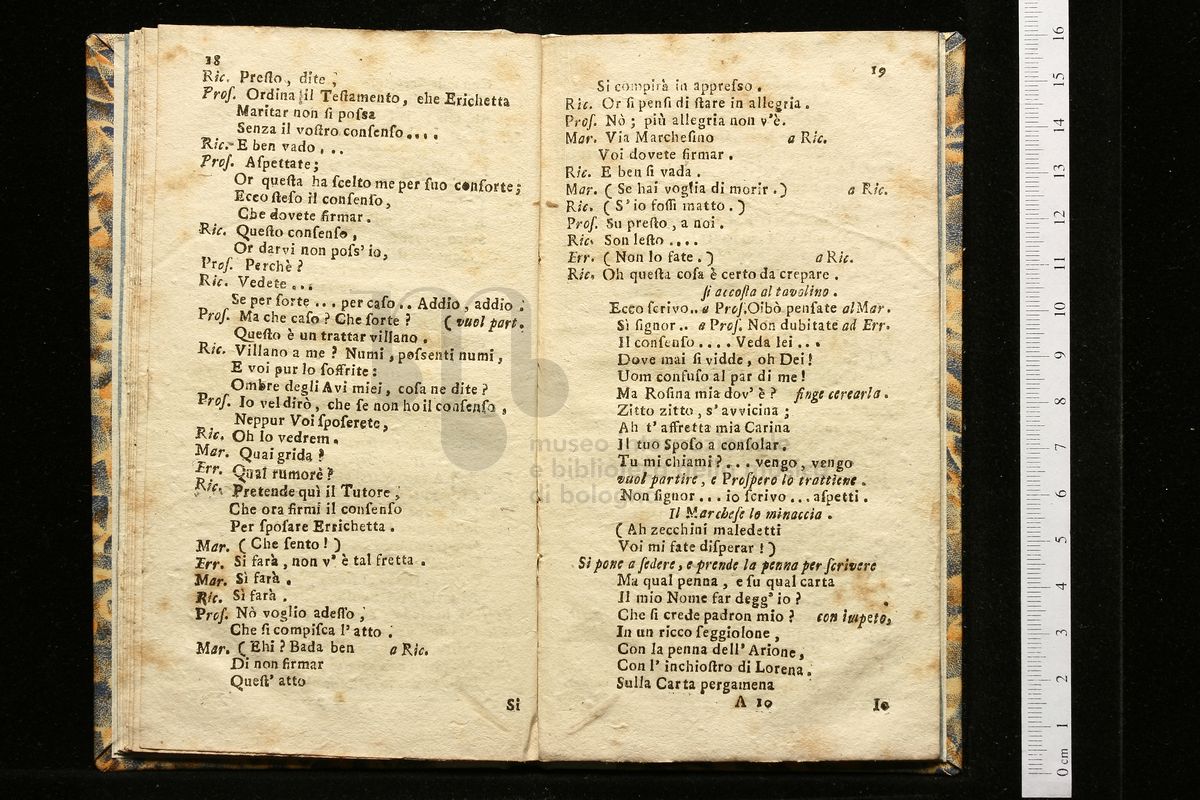 18
Ric. Preſto, dite,
Proſ. Ordina il Teſtamento, che Erichetta
Maritar non ſi poſsa
Senza il voſtro conſenſo....
Ric. E ben vado...
Proſ. Aſpettate;
Or queſta ha ſcelto me per ſuo conſorte;
Ecco ſteſo il conſenſo,
Che dovete firmar.
Ric. Queſto conſenſo,
Or darvi non poſs' io,
Proſ. Perchè?
Ric. Vedete...
Se per ſorte... per caſo.. Addio, addio:
Proſ. Ma che caſo? Che ſorte? (vuol part.
Queſto è un trattar villano.
Ric. Villano a me? Numi, poſsenti numi,
E voi pur lo ſoffrite:
Ombre degli Avi miei, coſa ne dite?
Proſ. Io vel dirò, che ſe non ho il conſenſo,
Neppur Voi ſpoſerete,
Ric. Oh lo vedrem.
Mar. Quai grida?
Err. Qual rumorè?
Ric. Pretende quì il Tutore,
Che ora firmi il conſenſo
Per ſpoſare Errichetta.
Mar. (Che ſento!)
Err. Si farà, non v' è tal fretta.
Mar. Sì farà.
Ric. Sì farà.
Proſ. Nò voglio adeſſo,
Che ſi compiſca l' atto.
Mar. (Ehi? Bada ben a Ric.
Di non firmar
Queſt' atto
Si
19
Si compirà in appreſso.
Ric. Or ſi penſi di ſtare in allegria.
Proſ. Nò; più allegria non v'è.
Mar. Via Marcheſino a Ric.
Voi dovete firmar.
Ric. E ben ſi vada.
Mar. (Se hai voglia di morir.) a Ric.
Ric. (S' io foſſi matto.)
Proſ. Su preſto, a noi.
Ric. Son leſto....
Err. (Non lo fate.) a Ric.
Ric. Oh queſta coſa è certo da crepare.
ſi accoſta al tavolino.
Ecco ſcrivo.. a Proſ. Oibò penſate al Mar.
Sì ſignor.. a Proſ. Non dubitate ad Err.
Il conſenſo.... Veda lei...
Dove mai ſi vidde, oh Dei!
Uom confuſo al par di me!
Ma Roſina mia dov' è? finge cerearla.
Zitto zitto, s' avvicina;
Ah t' affretta mia Carina
Il tuo Spoſo a conſolar.
Tu mi chiami?... vengo, vengo
vuol partire, e Proſpero lo trattiene.
Non ſignor... io ſcrivo... aſpetti.
Il Marcheſe lo minaccia.
(Ah zecchini maledetti
Voi mi fate diſperar!)
Si pone a ſedere, e prende la penna per ſcrivere
Ma qual penna, e ſu qual carta
Il mio Nome far degg' io?
Che ſi crede padron mio? con impeto,
In un ricco ſeggiolone,
Con la penna dell' Arione,
Con l' inchioſtro di Lorena.
Sulla Carta pergamena
A 10 Io
museo
e biblio
di bolog
0 cm 1 2 3 4 5 6 7 8 9 10 11 12 13 14 15 16